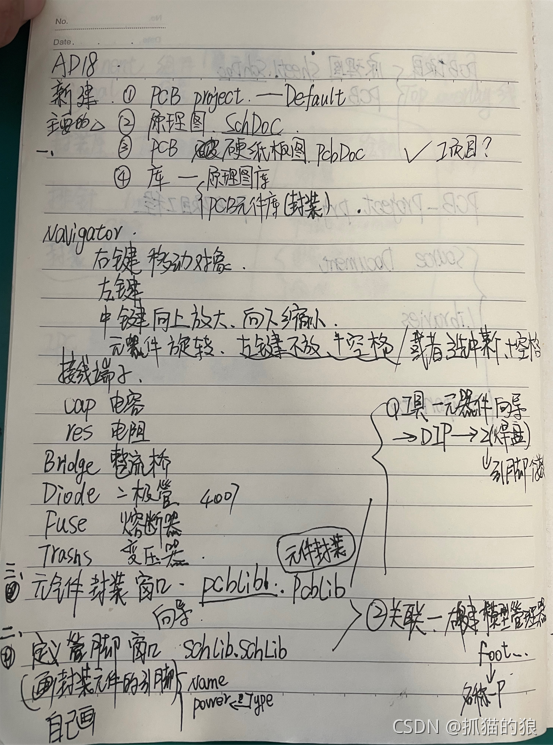 No.
Date.
AD18
新建 ① PCB project. — Default
主要的 ② 原理图. SchDoc.
一、 ③ PCB 硬纸板图. PcbDoc ✓ 工项目?
④ 库 — 原理图库
PCB元件库(封装).
Navigator.
右键 移动对象.
左键
中键向上放大、向下缩小.
元器件旋转. 左键不放, +空格 / 或者选中 +空格
接线端子.
cap 电容
res 电阻
Bridge 整流桥
Diode 二极管 4007
Fuse 熔断器
Trasns 变压器.
工具—元器件向导
→DIP→2(焊盘)
↓引脚个数
元件封装
三、 元件封装窗口. pcbLib1..PcbLib
向导
② 关联— 模型管理器
foot...
↓
名称-P
二、 定义管脚窗口 SchLib.SchLib
(画封装元件的引脚) Name
power Type
自己画
CSDN @抓猫的狼